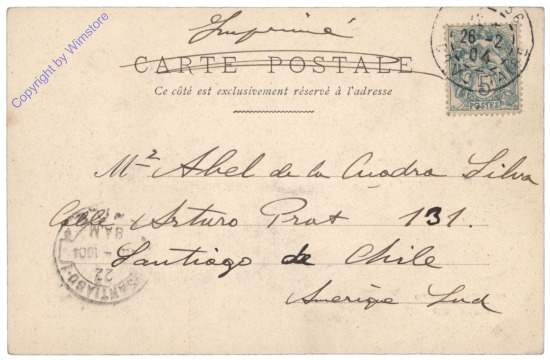 Imprimé
CARTE POSTALE
Ce côté est exclusivement réservé à l'adresse
26 -2
04
5
POSTES
Mr Abel de la Cuadra Silva
Calle Arturo Prat 131.
Santiago de Chile
Amerique Sud
8 AM
1904
22
SANTIAGO
Copyright by Wimstore